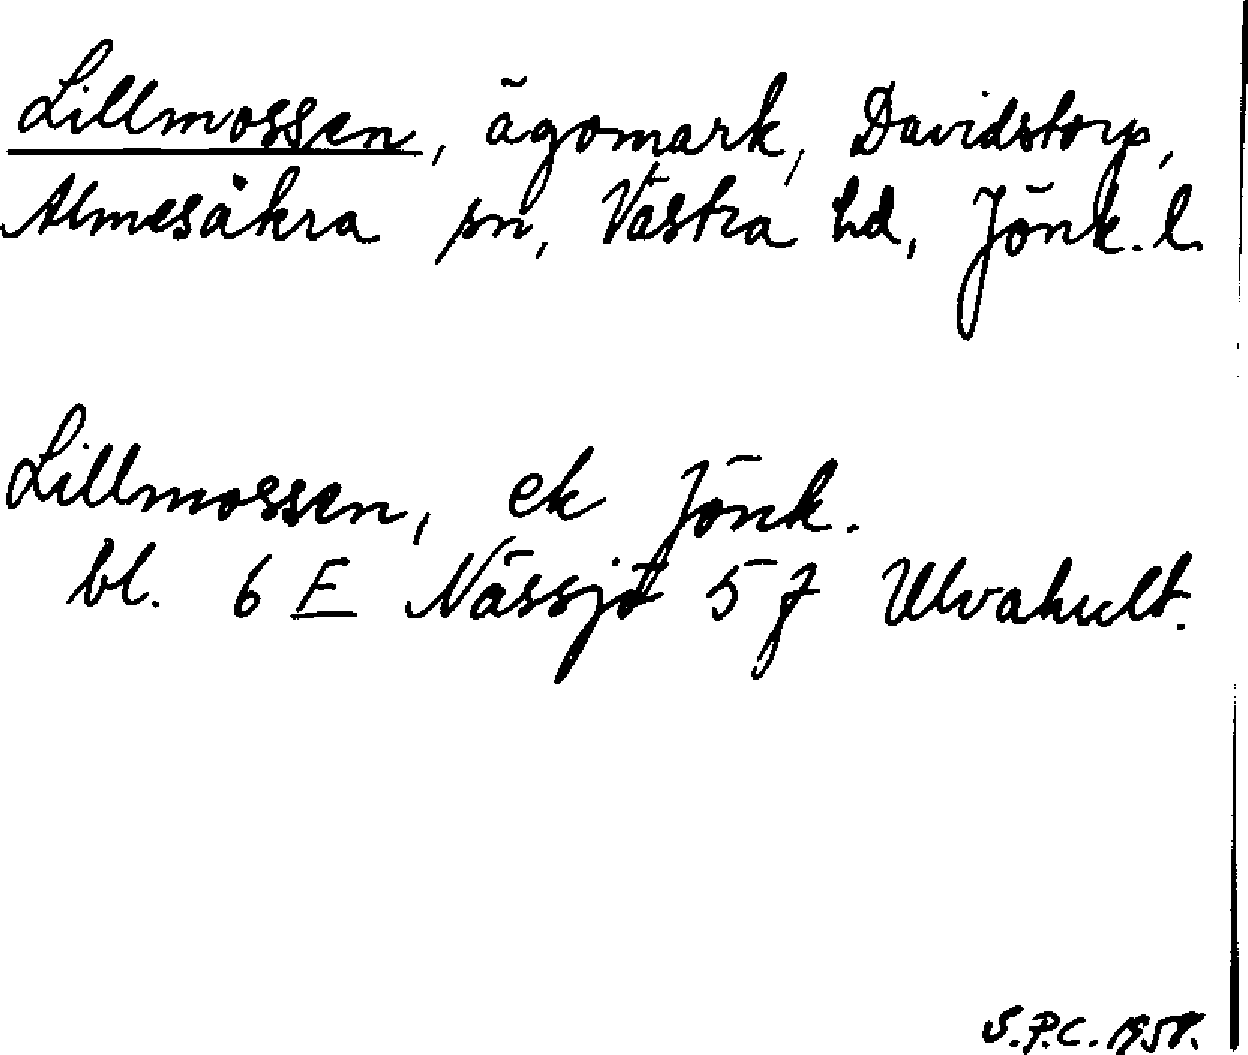 Lillmossen, ägomark, Davidstorp,
Almesåkra sn, Västra hd, Jönk. l.
Lillmossen, ek Jönk.
bl. 6 E Nässjö 5 f Ulvahult.
S.P.C. 1958.